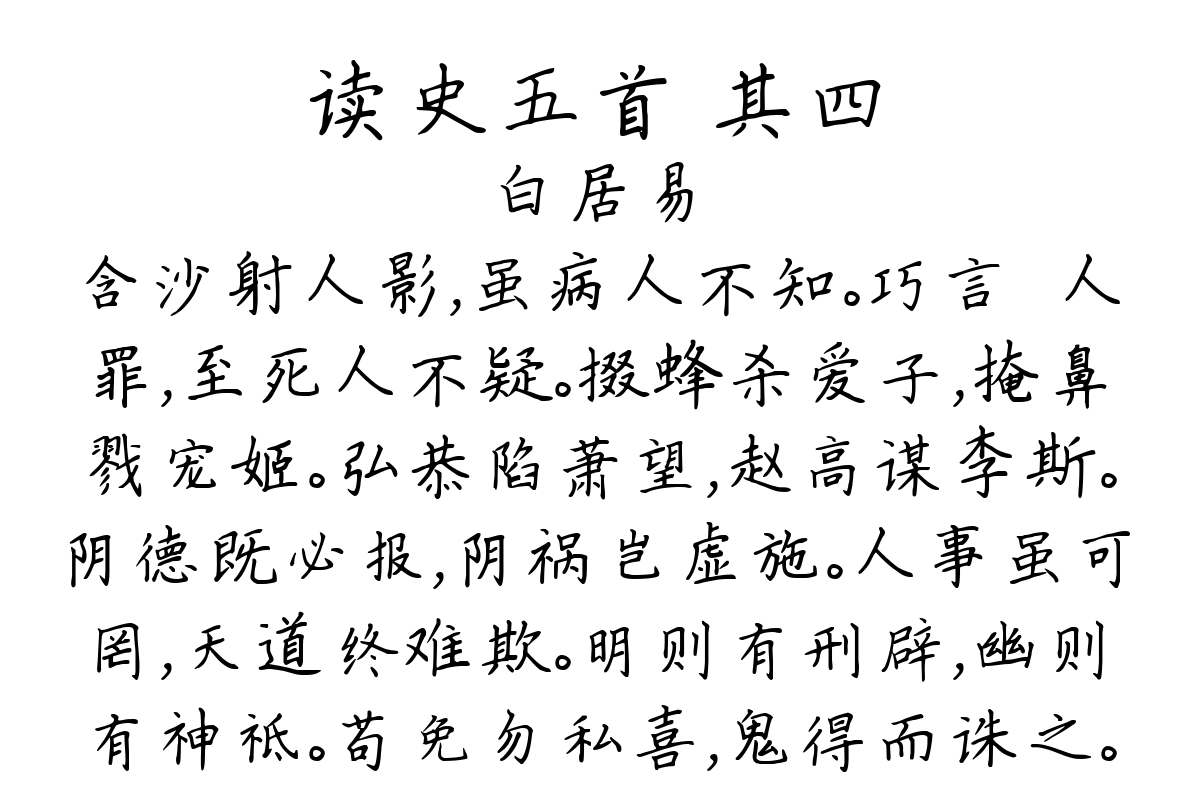 读史五首 其四
白居易
含沙射人影,虽病人不知。巧言 人
罪,至死人不疑。掇蜂杀爱子,掩鼻
戮宠姬。弘恭陷萧望,赵高谋李斯。
阴德既必报,阴祸岂虚施。人事虽可
罔,天道终难欺。明则有刑辟,幽则
有神祇。苟免勿私喜,鬼得而诛之。